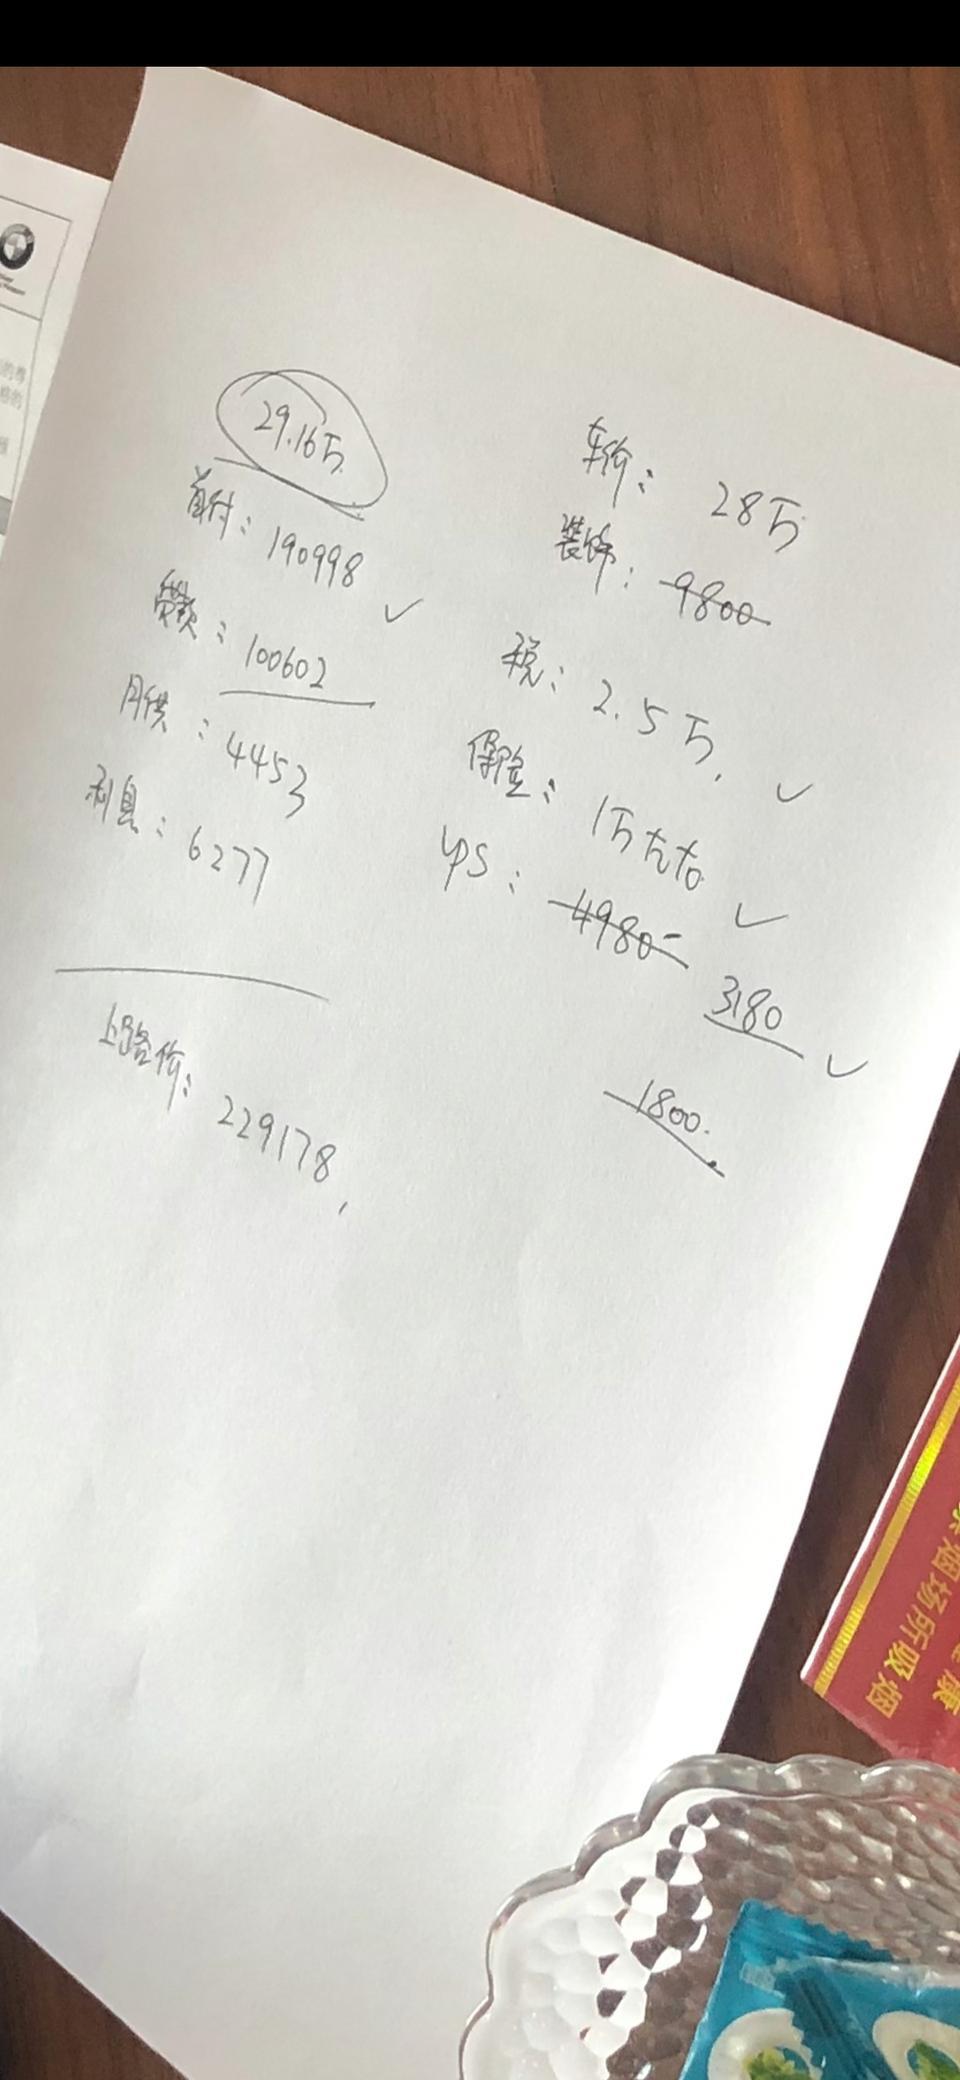 29.16万
首付：190998 ✓
贷款：100602
月供：4453
利息：6277
上路价：229178,
车价：28万
装饰：9800
税：2.5万. ✓
保险：1万左右 ✓
ψS：4980-
3180 ✓
1800.
的尊
感的
禁烟场所吸烟
康